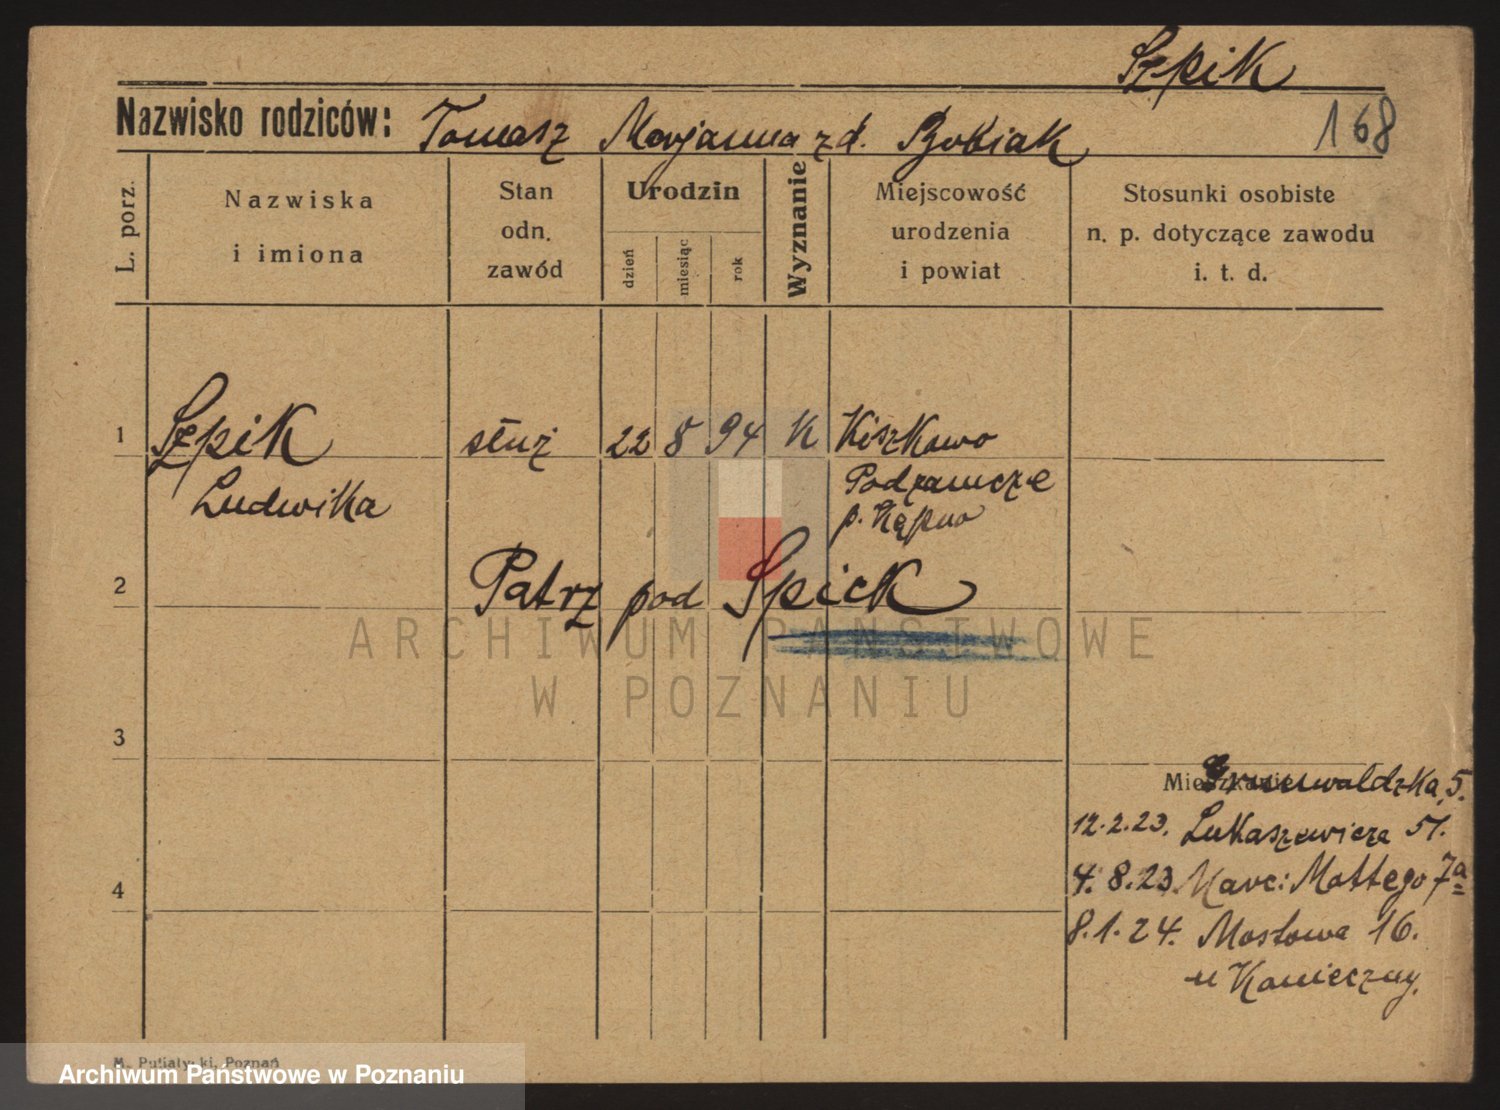 Szpik
Nazwisko rodziców: Tomasz Marjanna z d. Bobiak
168
L. porz.
Nazwiska
i imiona
Stan
odn.
zawód
Urodzin
dzień
miesiąc
rok
Wyznanie
Miejscowość
urodzenia
i powiat
Stosunki osobiste
n. p. dotyczące zawodu
i. t. d.
1 Szpik służ 22 8 94 K Kiszkowo
Ludwika Podzamcze
p. Kępno
2 Patrz pod Spick
ARCHIWUM PAŃSTWOWE
W POZNANIU
3
Mieszkanie
Grunwaldzka 5.
12.2.23. Łukaszewicza 51.
4
4. 8.23. Marc: Mottego 7a
8.1.24. Mostowa 16.
u Konieczny.
M. Putiatycki, Poznań
Archiwum Państwowe w Poznaniu